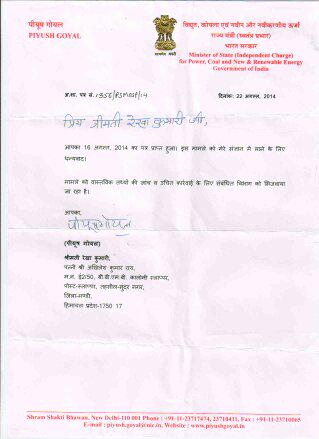 पीयूष गोयल
PIYUSH GOYAL
विद्युत, कोयला एवं नवीन और नवीकरणीय ऊर्जा
राज्य मंत्री (स्वतंत्र प्रभार)
भारत सरकार
Minister of State (Independent Charge)
for Power, Coal and New & Renewable Energy
Government of India
अ.शा. पत्र सं. 1356/
दिनांक: 22 अगस्त, 2014
प्रिय श्रीमती रेखा कुमारी जी,
आपका 16 अगस्त, 2014 का पत्र प्राप्त हुआ। इस मामले को मेरे संज्ञान में लाने के लिए
धन्यवाद।
मामले को वास्तविक तथ्यों की जांच व उचित कार्रवाई के लिए संबंधित विभाग को भिजवाया
जा रहा है।
आपका,
पीयूष गोयल
(पीयूष गोयल)
श्रीमती रेखा कुमारी,
पत्नी श्री अखिलेश कुमार राय,
म.नं. ई2/50, बी.बी.एम.बी. कालोनी स्लापर,
पोस्ट-स्लापर, तहसील-सुंदर नगर,
जिला-मण्डी,
हिमाचल प्रदेश-1750 17
Shram Shakti Bhawan, New Delhi-110 001 Phone : +91-11-23717474, 23710411, Fax : +91-11-23710065
E-mail : piyush.goyal@nic.in, Website : www.piyushgoyal.in